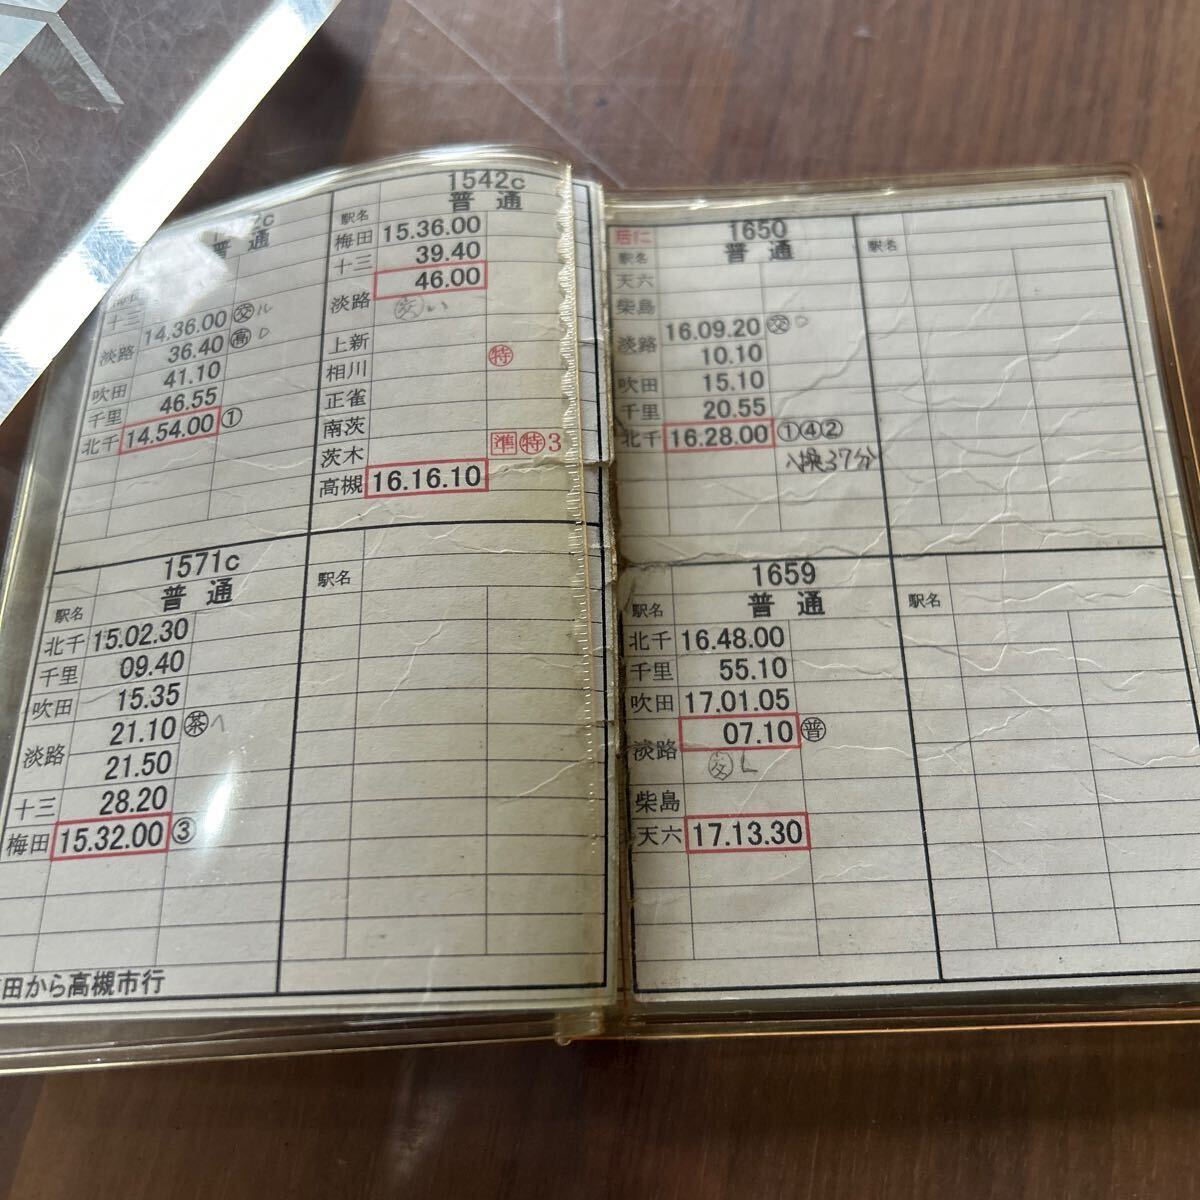 普通
十三 14.36.00 交
淡路 36.40 高
41.10
吹田 46.55
千里
北千 14.54.00 ①
1542c
普通
駅名
梅田 15.36.00
十三 39.40
46.00
淡路
交
上新
相川 特
正雀
南茨
茨木 準特3
高槻 16.16.10
1571c
普通
駅名
北千 15.02.30
千里 09.40
吹田 15.35
21.10 茶
淡路
21.50
十三 28.20
梅田 15.32.00 ③
駅名
田から高槻市行
1650
普通
駅名
天六
柴島
16.09.20 交
淡路
10.10
吹田 15.10
千里 20.55
北千 16.28.00 ①④②
37分
駅名
1659
普通
駅名
北千 16.48.00
千里 55.10
吹田 17.01.05
07.10 普
淡路
交
柴島
天六 17.13.30
駅名